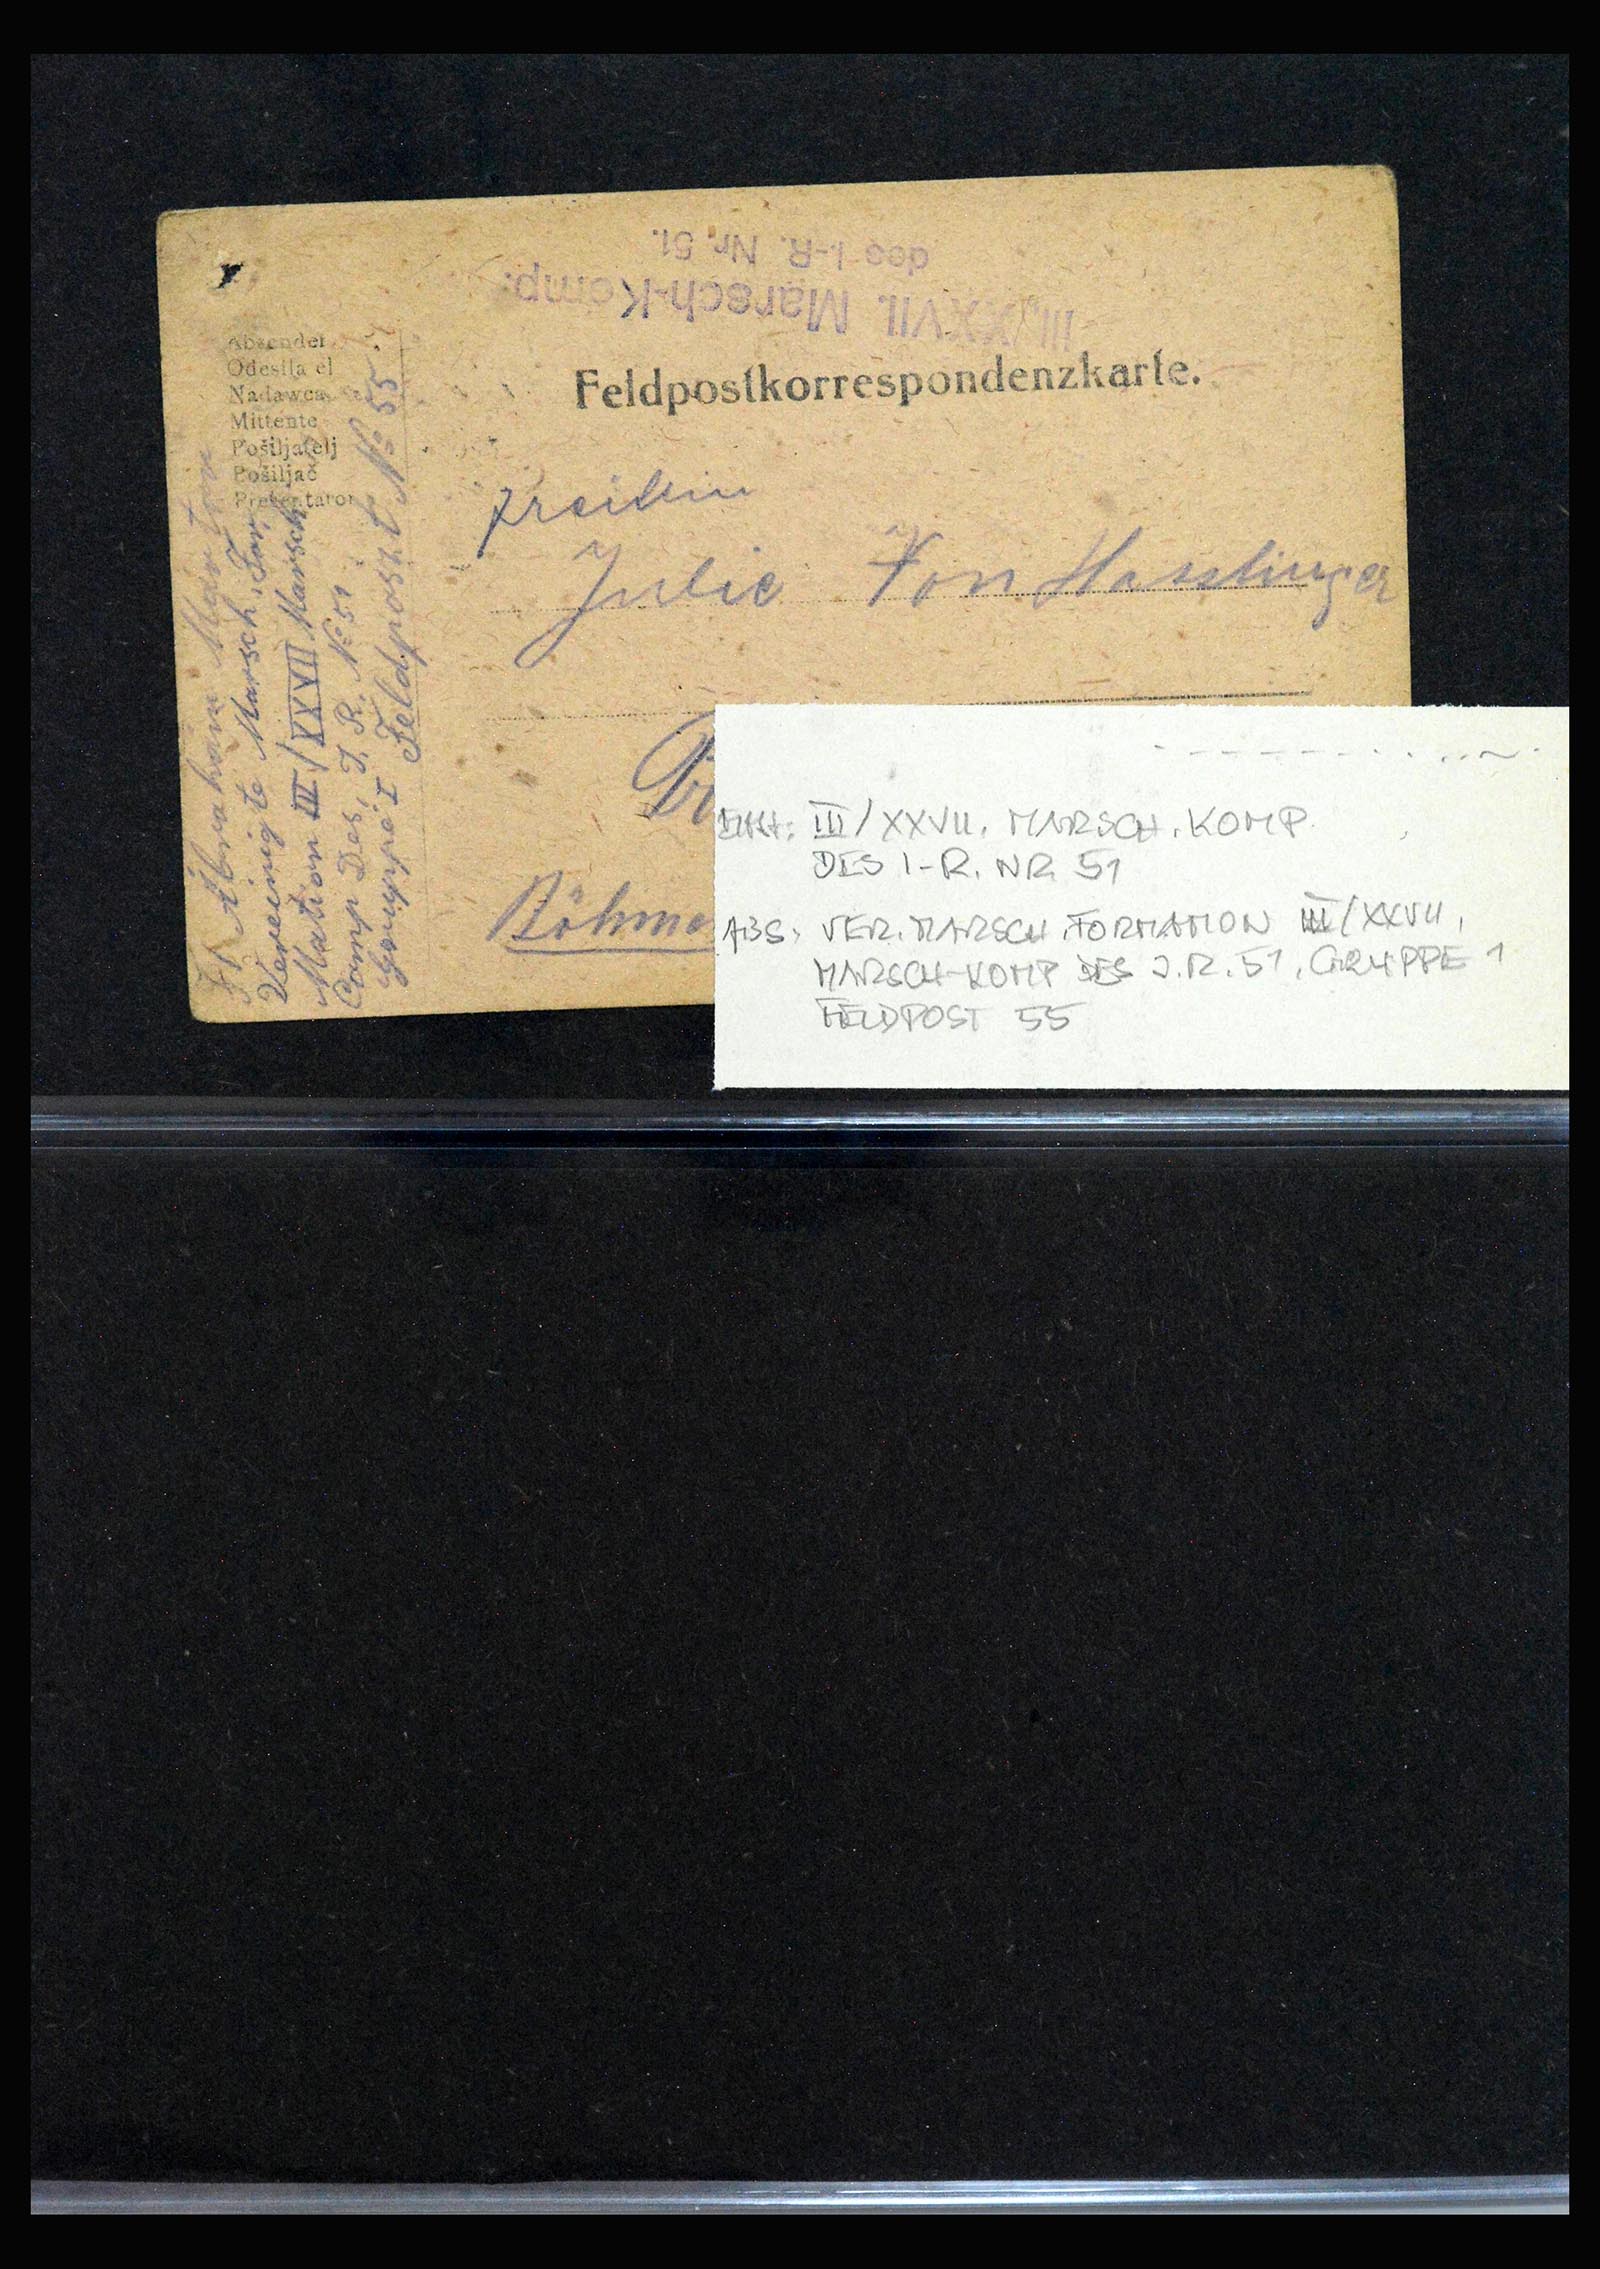 III./XXVII. Marsch-Komp.
des I.-R. Nr. 51.
Feldpostkorrespondenzkarte.
Absender
Odesílatel
Nadawca
Mittente
Pošiljatelj
Pošiljač
Prezentator
Ábrahám Márton
Vereinigte Marsch. For.
Mation III/XXVII Marsch
Comp Des, I. R. No 51
Gruppe I Feldposzt No 55
Julie Von Hasslinger
Böhme
III/XXVII. MARSCH. KOMP.
DES I-R. NR. 51
ABS: VER. MARSCH. FORMATION III/XXVII.
MARSCH-KOMP DES J.R. 51, GRUPPE 1
FELDPOST 55